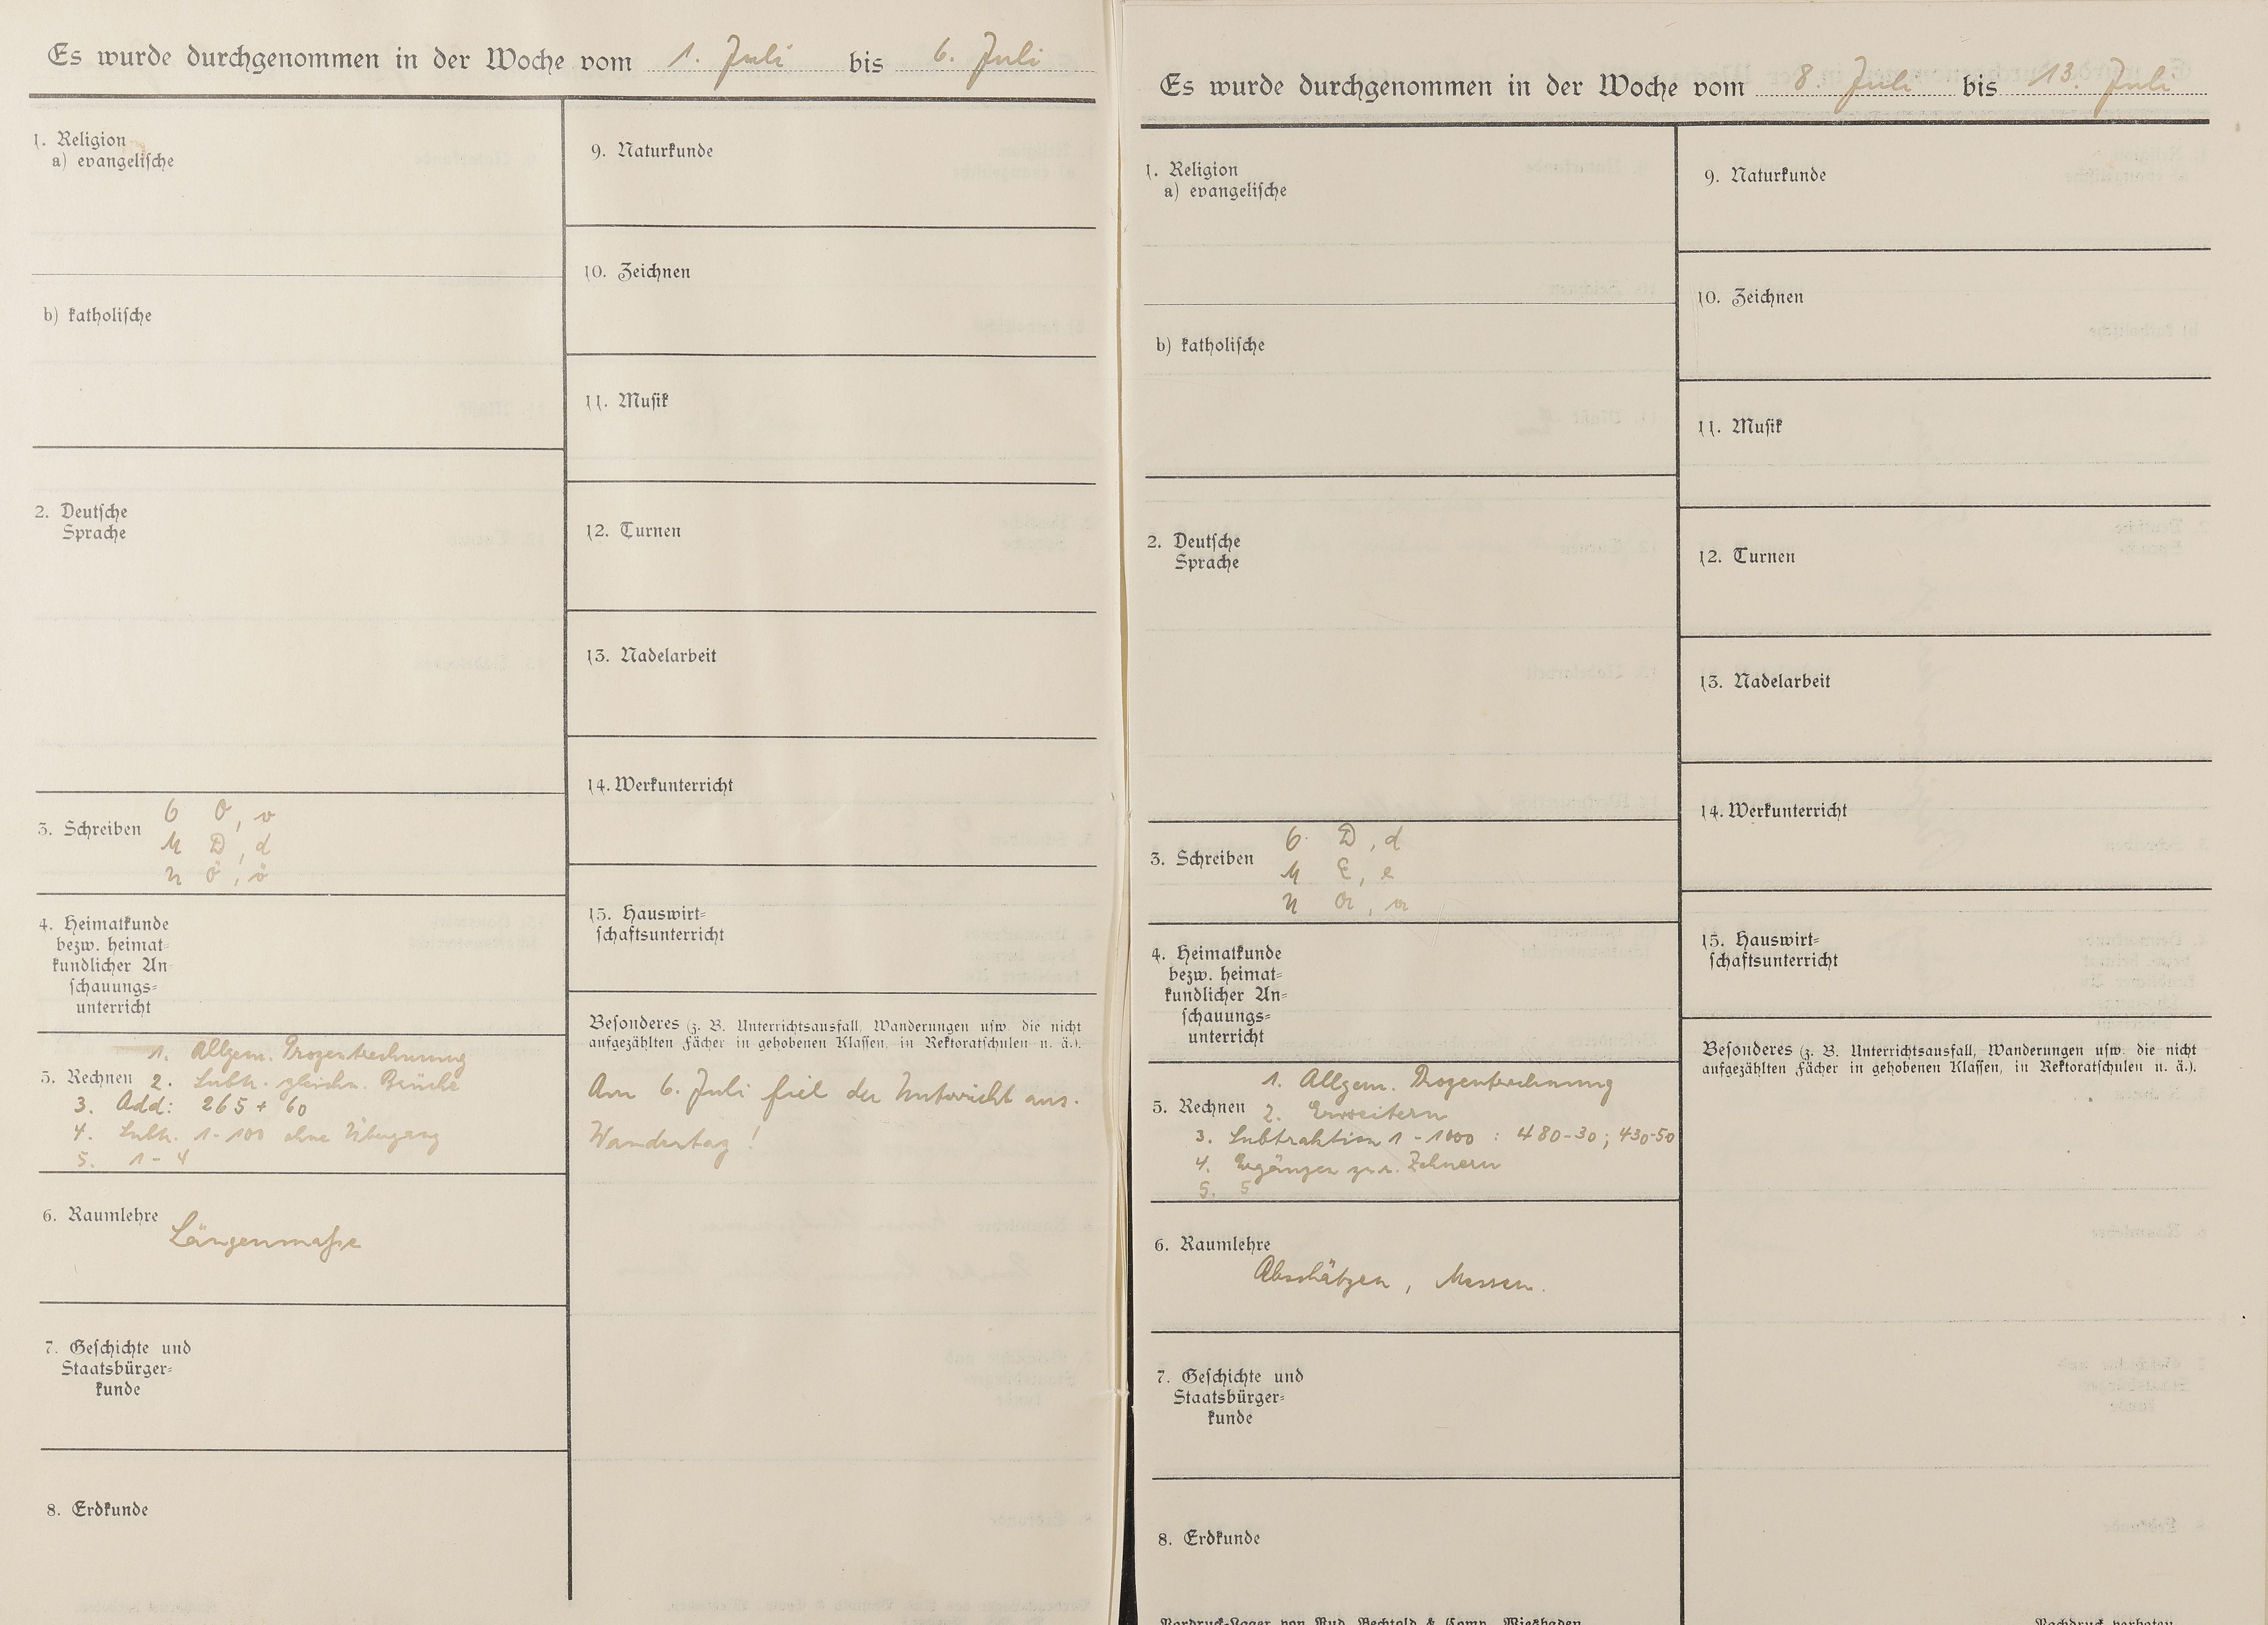 Es wurde durchgenommen in der Woche vom 1. Juli bis 6. Juli
1. Religion
a) evangelische
b) katholische
2. Deutsche
Sprache
3. Schreiben
O O, o
M D, d
U Ö, ö
4. Heimatkunde
bezw. heimat-
kundlicher An-
schauungs-
unterricht
1. Allgem. Prozentrechnung
5. Rechnen 2. Subtr. gleichn. Brüche
3. Add: 265 + 60
4. Subtr. 1-100 ohne Übergang
5. 1-4
6. Raumlehre
Längenmaße
7. Geschichte und
Staatsbürger-
kunde
8. Erdkunde
9. Naturkunde
10. Zeichnen
11. Musik
12. Turnen
13. Nadelarbeit
14. Werkunterricht
15. Hauswirt-
schaftsunterricht
Besonderes (z. B. Unterrichtsausfall, Wanderungen usw. die nicht
aufgezählten Fächer in gehobenen Klassen, in Rektoratschulen u. ä.).
Am 6. Juli fiel der Unterricht aus.
Wandertag!
Es wurde durchgenommen in der Woche vom 8. Juli bis 13. Juli
1. Religion
a) evangelische
b) katholische
2. Deutsche
Sprache
3. Schreiben
O D, d
M E, e
U
4. Heimatkunde
bezw. heimat-
kundlicher An-
schauungs-
unterricht
1. Allgem. Prozentrechnung
5. Rechnen 2. Erweitern
3. Subtraktion 1-1000 : 480-30; 430-50
4. Ergänzen zu r. Zehnern
5. 5
6. Raumlehre
Abschätzen, Messen.
7. Geschichte und
Staatsbürger-
kunde
8. Erdkunde
Vordruck-Lager von Rud. Bechtold & Comp. Wiesbaden
9. Naturkunde
10. Zeichnen
11. Musik
12. Turnen
13. Nadelarbeit
14. Werkunterricht
15. Hauswirt-
schaftsunterricht
Besonderes (z. B. Unterrichtsausfall, Wanderungen usw. die nicht
aufgezählten Fächer in gehobenen Klassen, in Rektoratschulen u. ä.).
Nachdruck verboten